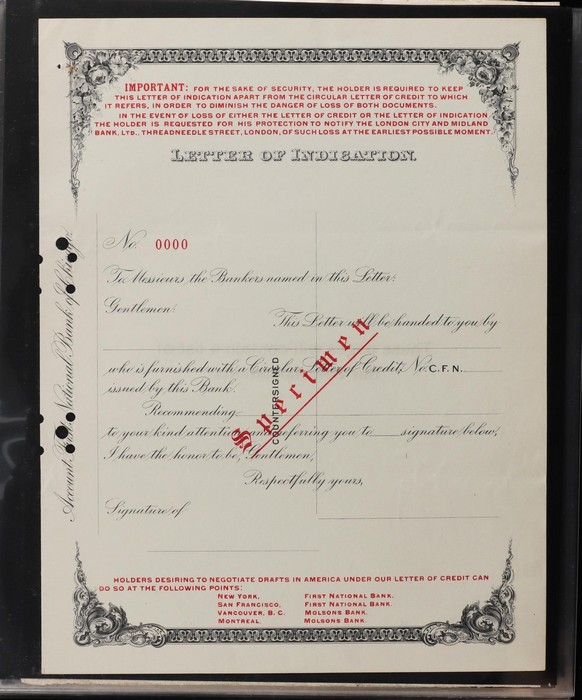 IMPORTANT: FOR THE SAKE OF SECURITY, THE HOLDER IS REQUIRED TO KEEP
THIS LETTER OF INDICATION APART FROM THE CIRCULAR LETTER OF CREDIT TO WHICH
IT REFERS, IN ORDER TO DIMINISH THE DANGER OF LOSS OF BOTH DOCUMENTS.
IN THE EVENT OF LOSS OF EITHER THE LETTER OF CREDIT OR THE LETTER OF INDICATION
THE HOLDER IS REQUESTED FOR HIS PROTECTION TO NOTIFY THE LONDON CITY AND MIDLAND
BANK, LTD., THREADNEEDLE STREET, LONDON, OF SUCH LOSS AT THE EARLIEST POSSIBLE MOMENT.
LETTER OF INDICATION.
No. 0000
To Messieurs the Bankers named in this Letter:
Gentlemen:
This Letter will be handed to you by
who is furnished with a Circular Letter of Credit, No. C.F.N.
issued by this Bank.
Recommending
to your kind attention and referring you to signature below,
I have the honor to be, Gentlemen,
Respectfully yours,
Signature of
COUNTERSIGNED
Specimen
Account. First National Bank of Chicago.
HOLDERS DESIRING TO NEGOTIATE DRAFTS IN AMERICA UNDER OUR LETTER OF CREDIT CAN
DO SO AT THE FOLLOWING POINTS:
NEW YORK, FIRST NATIONAL BANK.
SAN FRANCISCO, FIRST NATIONAL BANK.
VANCOUVER, B. C. MOLSONS BANK.
MONTREAL. MOLSONS BANK.